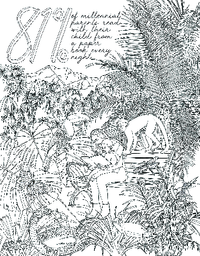 81%
of millennial
parents read
with their
child from
a paper
book every
night